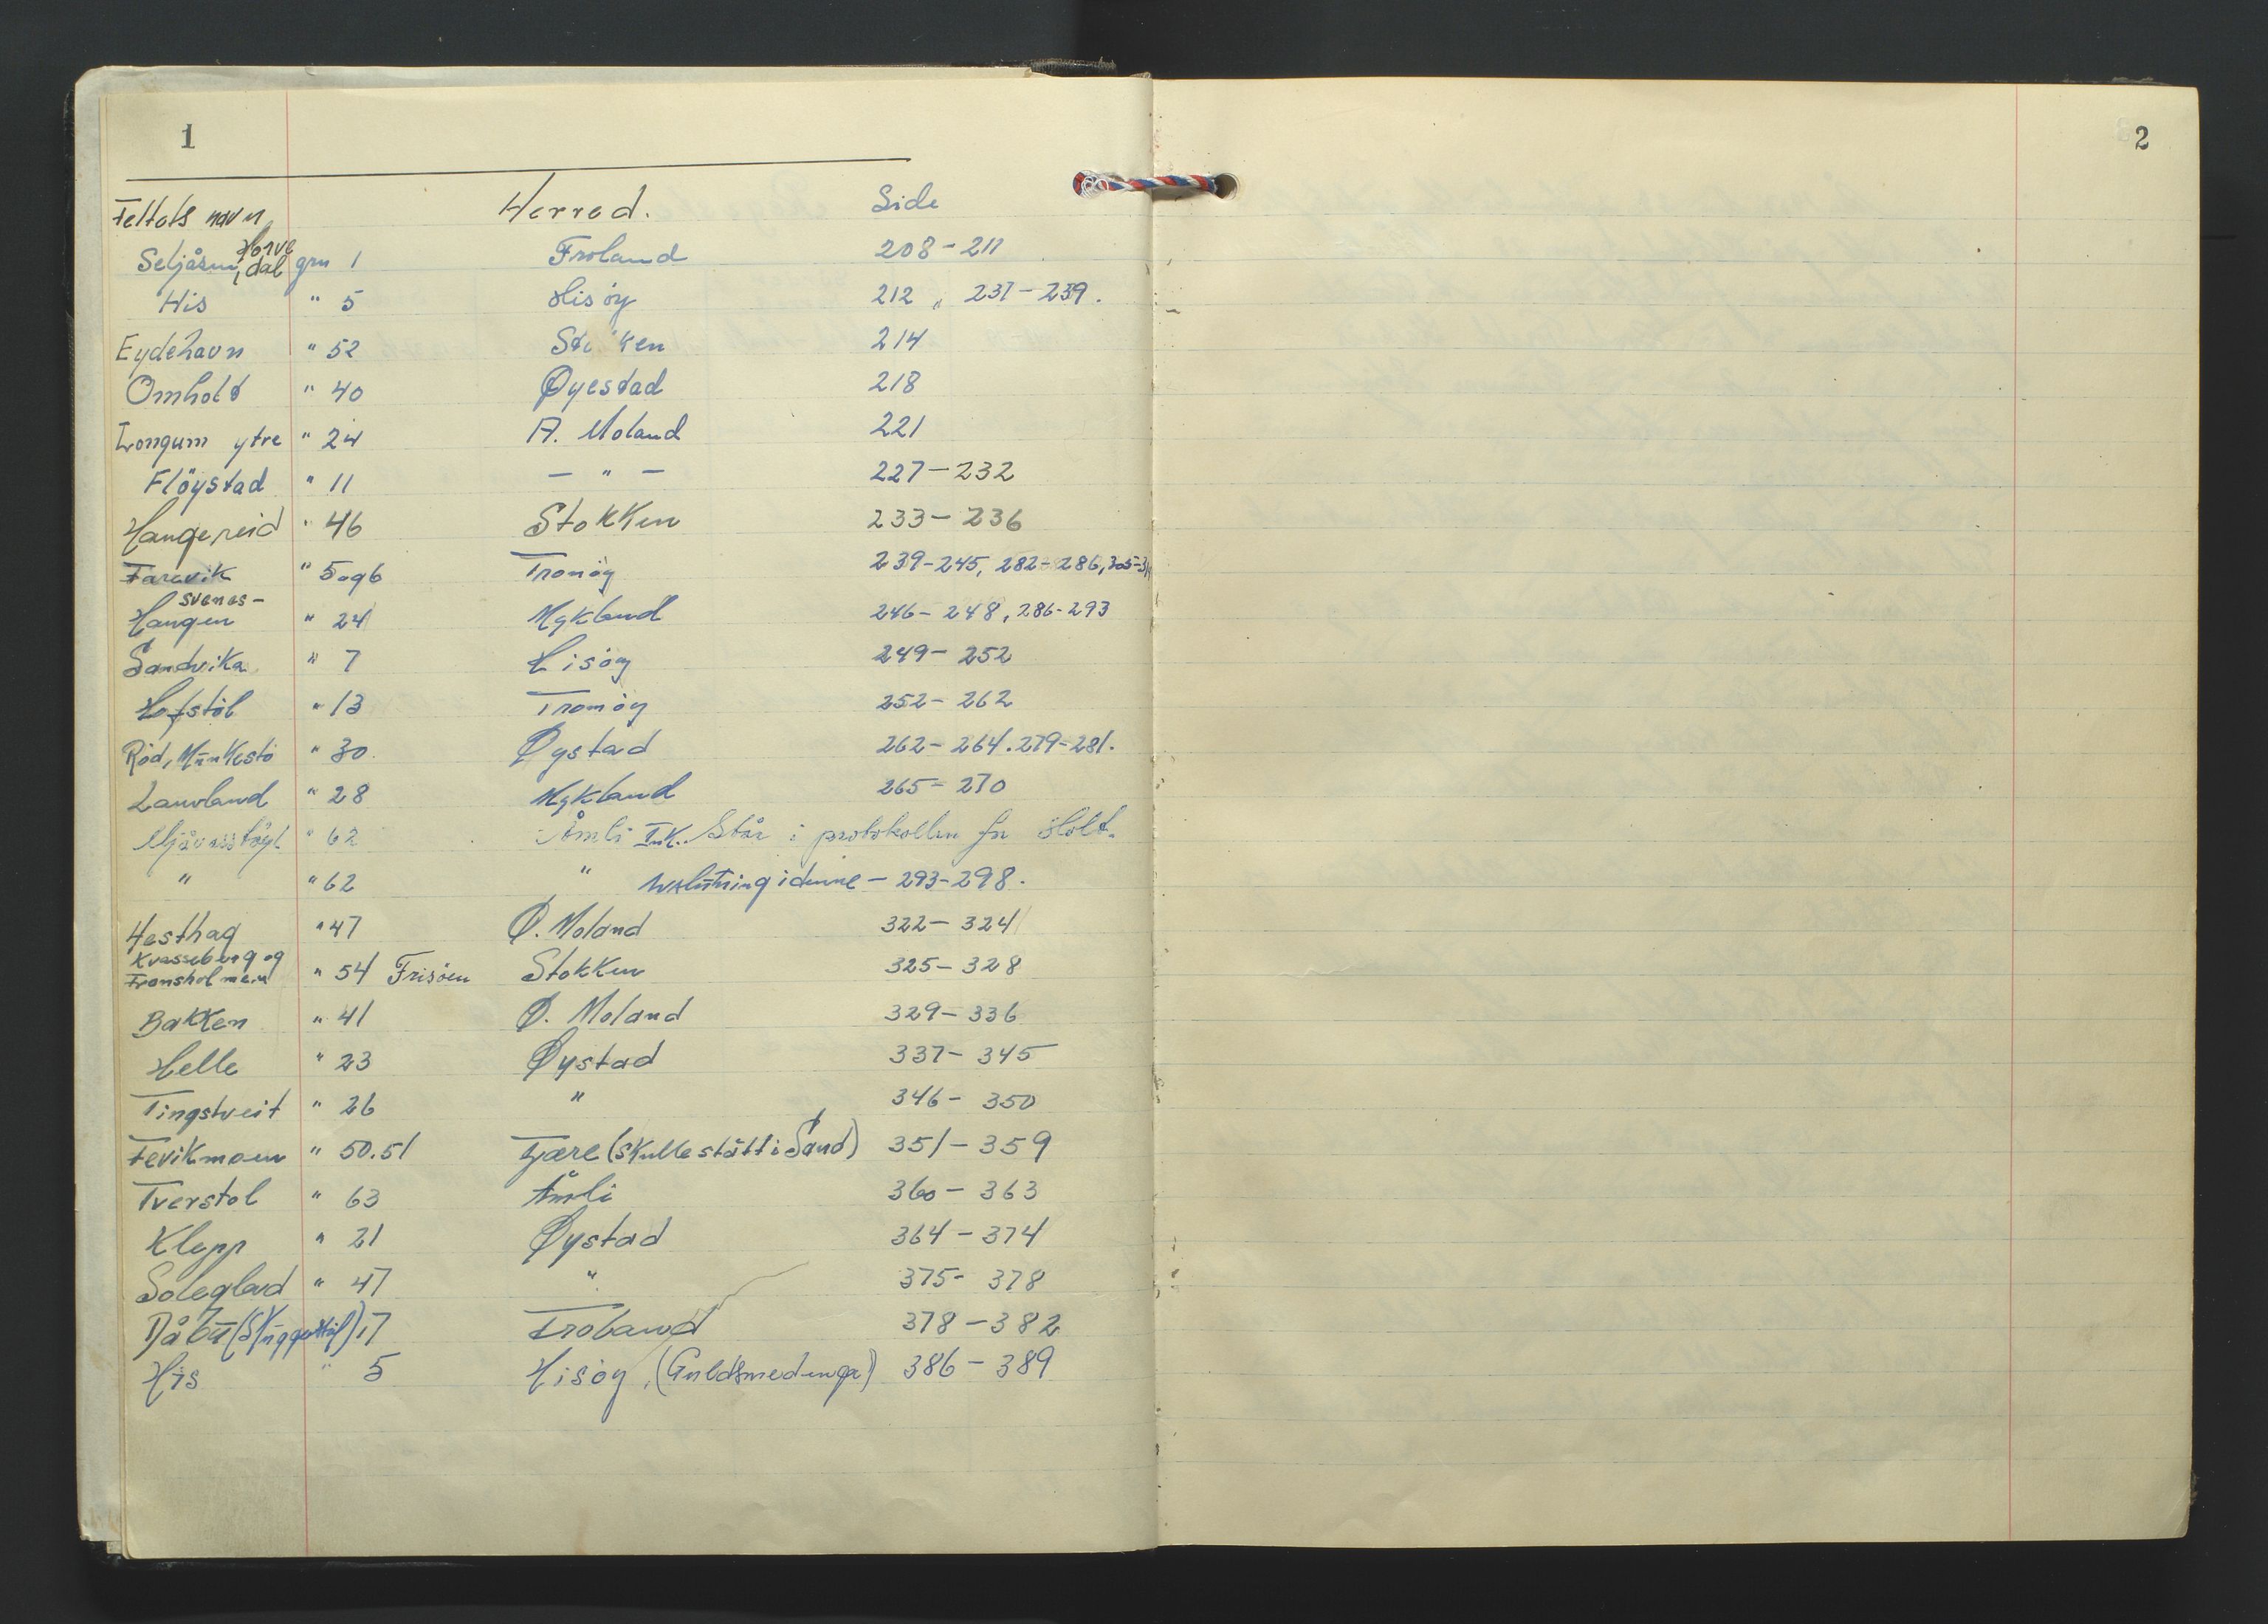 1
2
Feltets navn Herred. Side
Horve
Seljåsen, dal grn 1 Froland 208-211
His " 5 Hisöy 212, 237-239.
Eydehavn " 52 Stokken 214
Omholt " 40 Øyestad 218
Longum ytre " 24 A. Moland 221
Flöystad " 11 - " - 227-232
Haugereid " 46 Stokken 233-236
Farevik " 5 og 6 Tromöy 239-245, 282-286, 305-
svenes-
Haugen " 24 Mykland 246-248, 286-293
Sandvika " 7 Hisöy 249-252
Hofstöl " 13 Tromöy 252-262
Röd, Munkestö " 30. Øystad 262-264. 279-281.
Lauvland " 28 Mykland 265-270
" 62 Åmli Står i protokollen for Holt.
" " 62 " i denne - 293-298.
Hesthag " 47 Ø. Moland 322-324
Kvasseberg og
Fransholmen " 54 Frisöen Stokken 325-328
Bakken " 41 Ø. Moland 329-336
Helle " 23 Øystad 337-345
Tingstveit " 26 " 346-350
Fevikmoen " 50.51 Fjære (skulle stått i Sand) 351-359
Tverstöl " 63 Åmli 360-363
Klepp " 21 Øystad 364-374
Soleglad " 47 " 375-378
Dåbu (Skuggestöl) 17 Froland 378-382
His " 5 Hisöy, (Guldsmedenga) 386-389